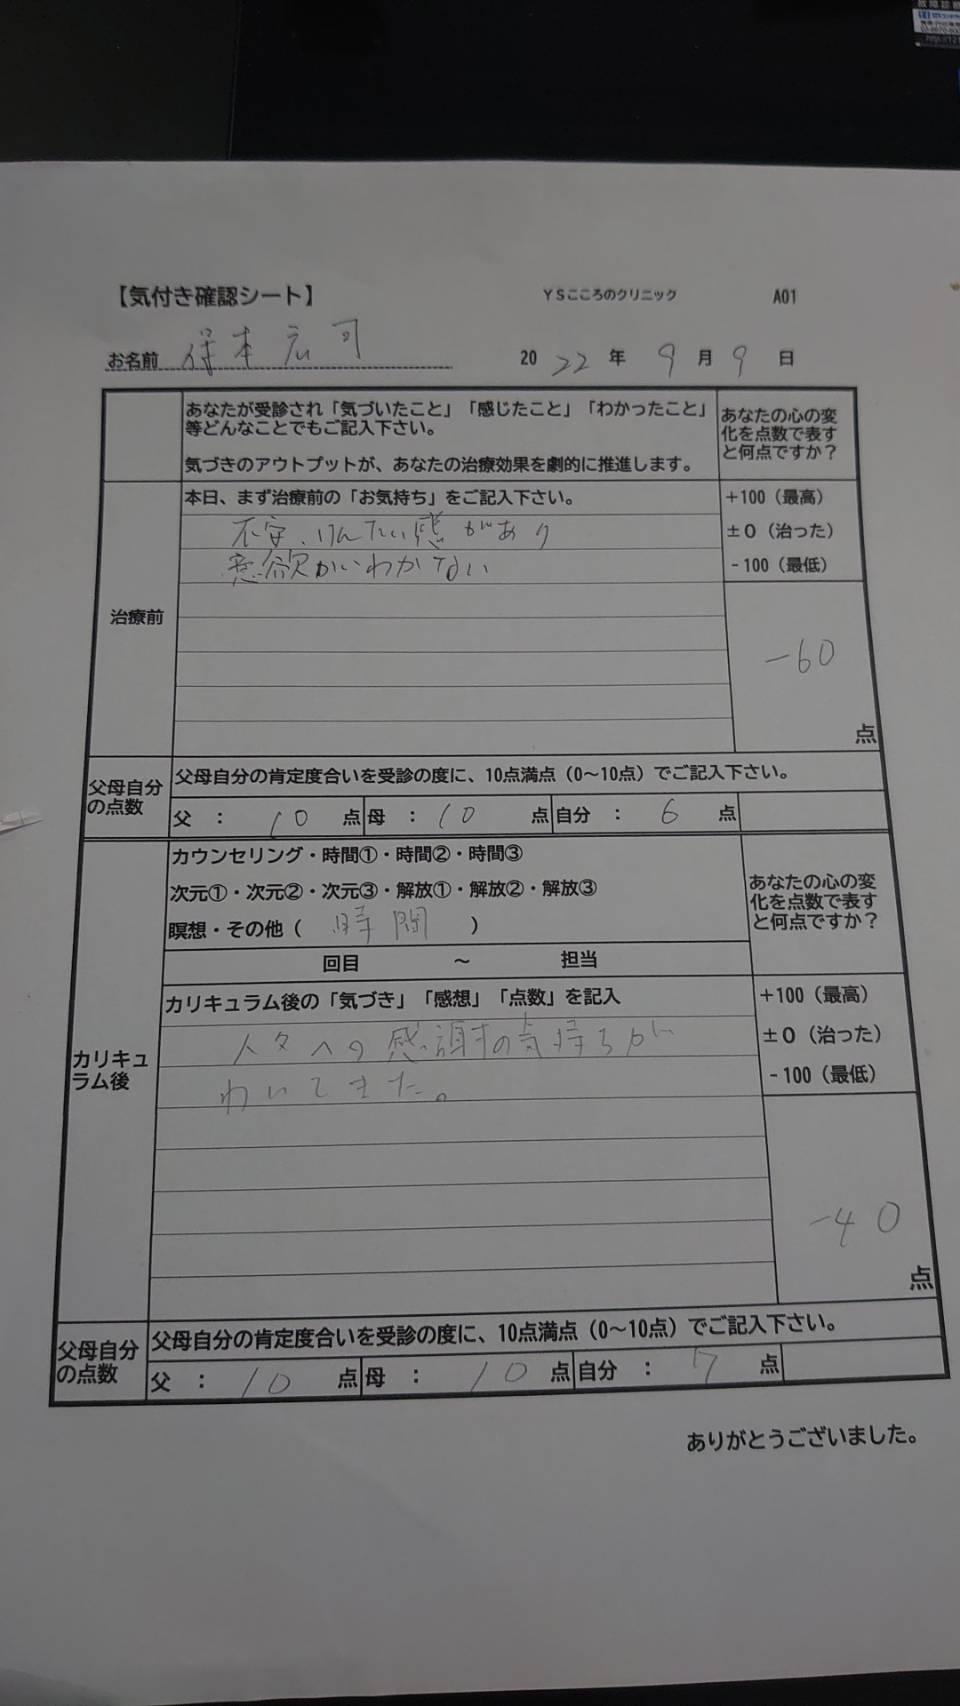 【気付き確認シート】 YSこころのクリニック A01
お名前 保本広司 2022年9月9日
あなたが受診され「気づいたこと」「感じたこと」「わかったこと」
等どんなことでもご記入下さい。
気づきのアウトプットが、あなたの治療効果を劇的に推進します。
あなたの心の変
化を点数で表す
と何点ですか？
治療前
本日、まず治療前の「お気持ち」をご記入下さい。
不安、けんたい感があり
意欲がいわかない
+100（最高）
±0（治った）
-100（最低）
-60
点
父母自分
の点数
父母自分の肯定度合いを受診の度に、10点満点（0～10点）でご記入下さい。
父 ： 10 点 母 ： 10 点 自分 ： 6 点
カリキュ
ラム後
カウンセリング・時間①・時間②・時間③
次元①・次元②・次元③・解放①・解放②・解放③
瞑想・その他（ 時間 ）
回目 ～ 担当
あなたの心の変
化を点数で表す
と何点ですか？
カリキュラム後の「気づき」「感想」「点数」を記入
人々への感謝の気持ちが
わいてきた。
+100（最高）
±0（治った）
-100（最低）
-40
点
父母自分
の点数
父母自分の肯定度合いを受診の度に、10点満点（0～10点）でご記入下さい。
父 ： 10 点 母 ： 10 点 自分 ： 7 点
ありがとうございました。